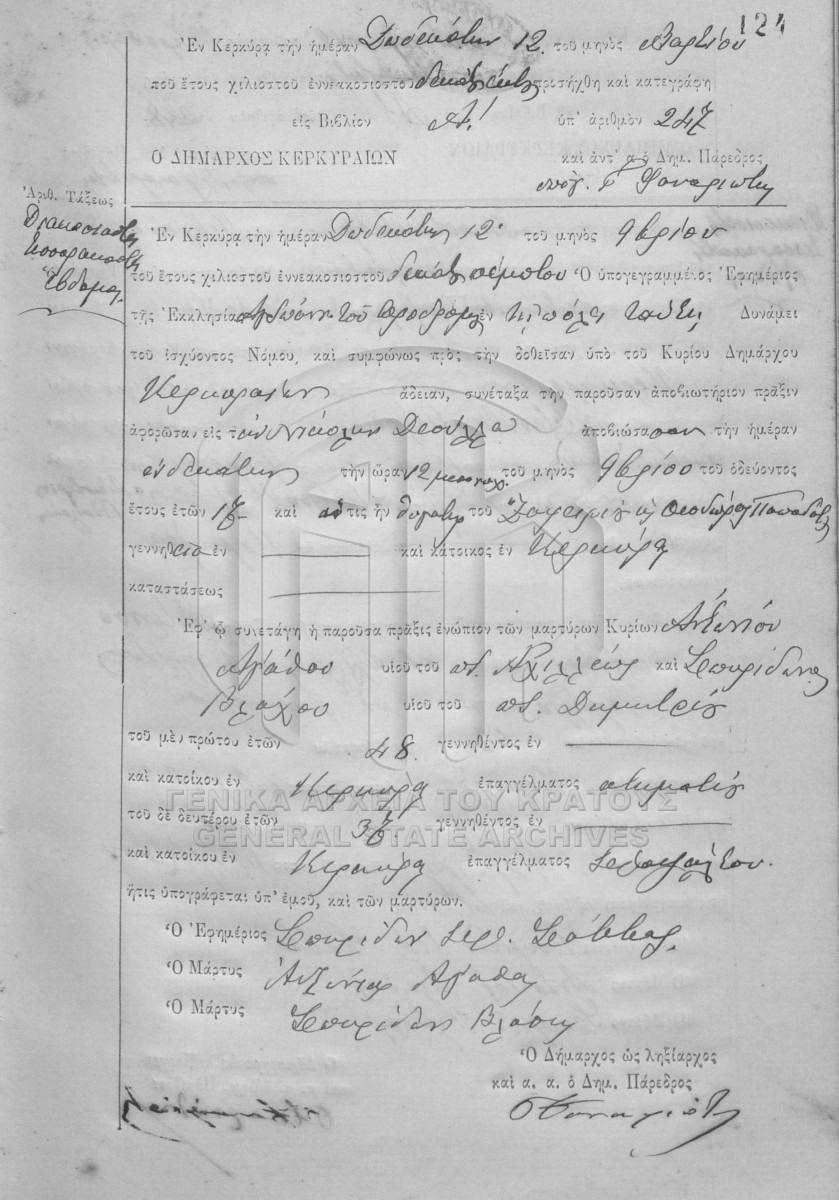 124
Ἐν Κερκύρᾳ τὴν ἡμέραν Δωδεκάτην 12. τοῦ μηνὸς Μαρτίου
τοῦ ἔτους χιλιοστοῦ ἐννεακοσιοστοῦ δεκάτου ἕκτου προσήχθη καὶ κατεγράφη
εἰς Βιβλίον Α! ὑπ' ἀριθμὸν 247
Ὁ ΔΗΜΑΡΧΟΣ ΚΕΡΚΥΡΑΙΩΝ καὶ ἀντ' α. ὁ Δημ. Πάρεδρος
Ἀριθ. Τάξεως
Διακοσιοστὴ
τεσσαρακοστὴ
Ἑβδόμη.
Ἐν Κερκύρᾳ τὴν ἡμέραν Δωδεκάτην 12 τοῦ μηνὸς 9βρίου
τοῦ ἔτους χιλιοστοῦ ἐννεακοσιοστοῦ δεκάτου πέμπτου Ὁ ὑπογεγραμμένος Ἐφημέριος
τῆς Ἐκκλησίας τοῦ Προδρόμου ἐν τῇ πόλει ταύτῃ Δυνάμει
τοῦ ἰσχύοντος Νόμου, καὶ συμφώνως πρὸς τὴν δοθεῖσαν ὑπὸ τοῦ Κυρίου Δημάρχου
Κερκυραίων ἄδειαν, συνέταξα τὴν παροῦσαν ἀποβιωτήριον πρᾶξιν
ἀφορῶσαν εἰς τὴν ἀποβιώσασαν τὴν ἡμέραν
ἑνδεκάτην τὴν ὥραν 12 μεσονυχ. τοῦ μηνὸς 9βρίου τοῦ ὁδεύοντος
ἔτους ἐτῶν 17 καὶ ἥτις ἦν θυγάτηρ τοῦ
γεννηθεῖσα ἐν καὶ κάτοικος ἐν Κέρκυρᾳ
καταστάσεως
Ἐφ' ᾧ συνετάγη ἡ παροῦσα πρᾶξις ἐνώπιον τῶν μαρτύρων Κυρίων Ἀντωνίου
Ἀγάθου υἱοῦ τοῦ ποτ. Ἀχιλλέως καὶ Σπυρίδωνος
Βλάχου υἱοῦ τοῦ ποτ. Δημητρίου
τοῦ μὲν πρώτου ἐτῶν 48. γεννηθέντος ἐν
καὶ κατοίκου ἐν Κερκύρᾳ ἐπαγγέλματος κτηματίου
τοῦ δὲ δευτέρου ἐτῶν 37 γεννηθέντος ἐν
καὶ κατοίκου ἐν Κερκύρᾳ ἐπαγγέλματος
ἥτις ὑπογράφεται ὑπ' ἐμοῦ, καὶ τῶν μαρτύρων.
Ὁ Ἐφημέριος Σπυρίδων ἱερ.
Ὁ Μάρτυς Ἀντώνιος Ἀγάθος
Ὁ Μάρτυς Σπυρίδων
Ὁ Δήμαρχος ὡς ληξίαρχος
καὶ α. α. ὁ Δημ. Πάρεδρος
ΓΕΝΙΚΑ ΑΡΧΕΙΑ ΤΟΥ ΚΡΑΤΟΥΣ
GENERAL STATE ARCHIVES